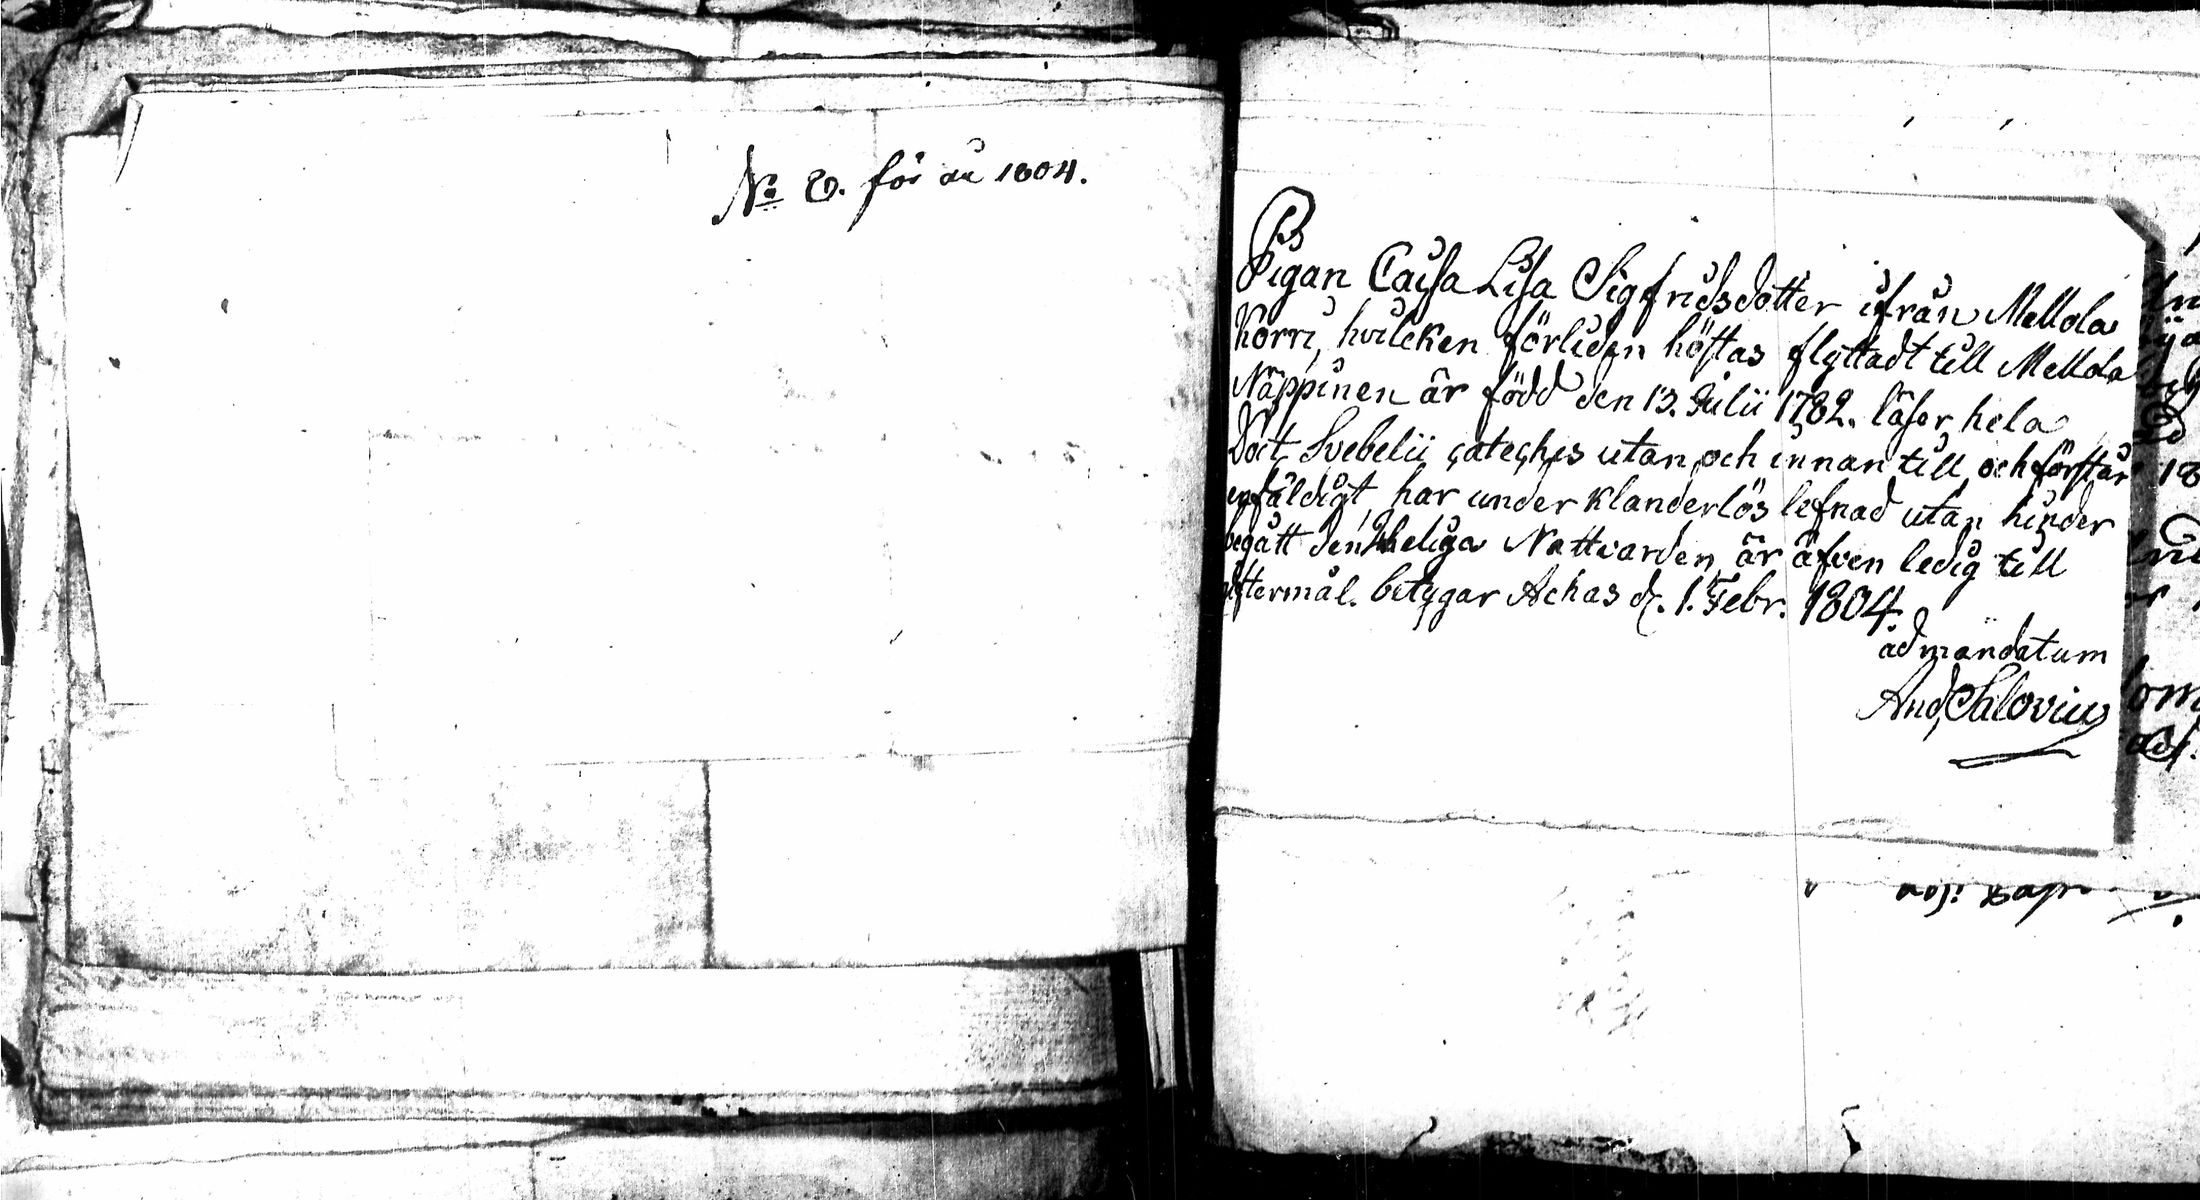 No 8. för åu 1804.
Pigan Caisa Lisa Sigfridsdotter ifrån Mellola
Korri, hvilcken förliden höstas flyttadt till Mellola
Näppinen är född den 13. Julii 1782. läser hela
Doct. Svebelii catechis utan och innan till, och förstår
enfäldigt, har under klanderlös lefnad utan hinder
begått den heliga Nattvarden, är äfven ledig till
giftermål. betygar Achas d. 1. Febr. 1804.
ad mandatum
And. Salovius